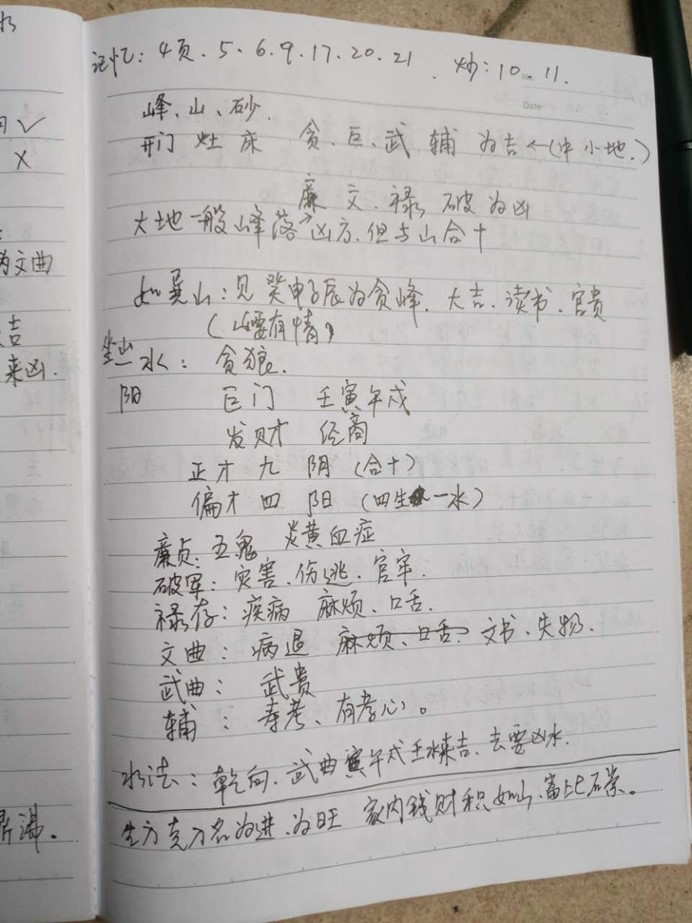 水
门✓
×
为文曲
吉
来凶.
沸。
记忆: 4页. 5. 6. 9. 17. 20. 21. 炒: 10. 11.
Date
峰、山、砂.
开门 灶 床 贪. 巨. 武 辅 为吉←(中小地.)
廉 文. 禄 破为凶
大地一般峰落凶方.但与山合十
如巽山:见癸申子辰为贪峰. 大吉. 读书. 官贵
(山要有情)
坐山水: 贪狼.
阳 巨门 壬寅午戌
发财 经商
正才 九 阴 (合十)
偏才 四 阳 (四生一水)
廉贞: 五鬼 炎黄血症
破军: 灾害. 伤逃. 官牢.
禄存: 疾病 麻烦、口舌.
文曲: 病退 麻烦、口舌. 文书. 失物.
武曲: 武贵
辅: 寿考、有孝心。
水法: 乾向. 武曲寅午戌壬水来吉. 去要凶水.
生方克方名为进.为旺 家内钱财积如山.富比石崇。